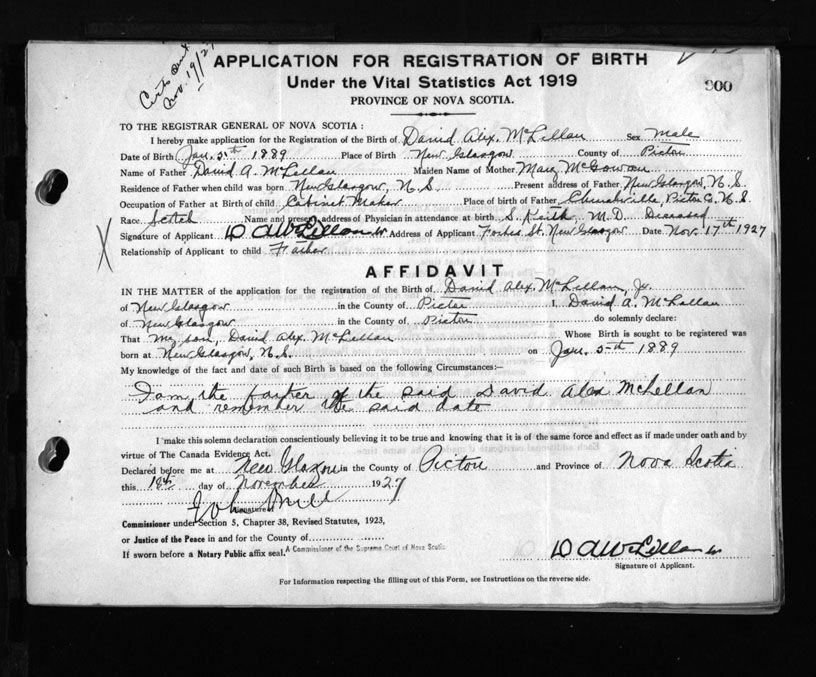 Certs Sent
Nov. 19/27
APPLICATION FOR REGISTRATION OF BIRTH
Under the Vital Statistics Act 1919
900
PROVINCE OF NOVA SCOTIA.
TO THE REGISTRAR GENERAL OF NOVA SCOTIA:
I hereby make application for the Registration of the Birth of David Alex. McLellan Sex Male
Date of Birth Jan. 5th 1889 Place of Birth New Glasgow County of Pictou
Name of Father David A. McLellan Maiden Name of Mother Mary McGowan
Residence of Father when child was born New Glasgow, N.S. Present address of Father New Glasgow, N.S.
Occupation of Father at Birth of child Cabinet Maker Place of birth of Father Pictou Co. N.S.
Race Scotch Name and present address of Physician in attendance at birth S. Keith, M.D. Deceased
Signature of Applicant D A McLellan Address of Applicant Forbes St. New Glasgow Date Nov. 17th 1927
Relationship of Applicant to child Father
AFFIDAVIT
IN THE MATTER of the application for the registration of the Birth of David Alex. McLellan, Jr.
of New Glasgow in the County of Pictou I, David A. McLellan
of New Glasgow in the County of Pictou do solemnly declare:
That my son, David Alex. McLellan Whose Birth is sought to be registered was
born at New Glasgow, N.S. on Jan. 5th 1889
My knowledge of the fact and date of such Birth is based on the following Circumstances:—
I am the father of the said David Alex McLellan
and remember the said date
I make this solemn declaration conscientiously believing it to be true and knowing that it is of the same force and effect as if made under oath and by
virtue of The Canada Evidence Act.
Declared before me at New Glasgow in the County of Pictou and Province of Nova Scotia
this 18th day of November 1927
Signature of
Commissioner under Section 5, Chapter 38, Revised Statutes, 1923,
or Justice of the Peace in and for the County of
If sworn before a Notary Public affix seal. A Commissioner of the Supreme Court of Nova Scotia
D A McLellan
Signature of Applicant.
For Information respecting the filling out of this Form, see Instructions on the reverse side.